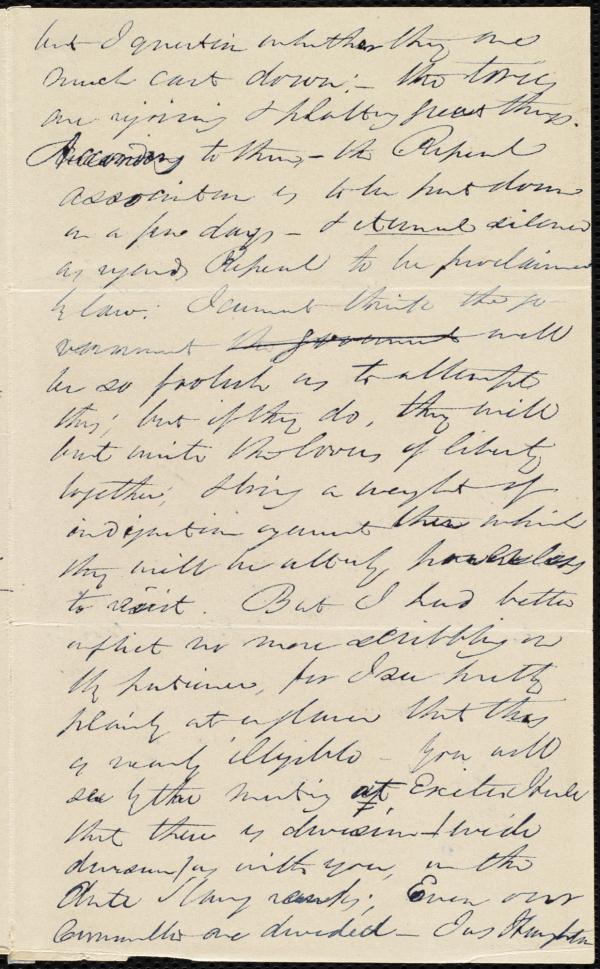 but I question whether they are
much cast down; - the tories
are rejoicing & plotting great things.
According to them, - the Repeal
association is to be put down
in a few days - & eternal silence
as regards Repeal to be proclaimed
by law: I cannot think the go-
vernment the government will
be so foolish as to attempt
this; but if they do, they will
but unite the lovers of liberty
together, & bring a weight of
indignation against them which
they will be utterly powerless
to resist. But I had better
inflict no more scribbling on
thy patience, for I see pretty
plainly at a glance that this
is nearly illegible - You will
see by the meeting at Exeter Hall
that there is division & wide
division, as with you, in the
Anti Slavery ranks; Even our
Committee are divided - Jas Haughton